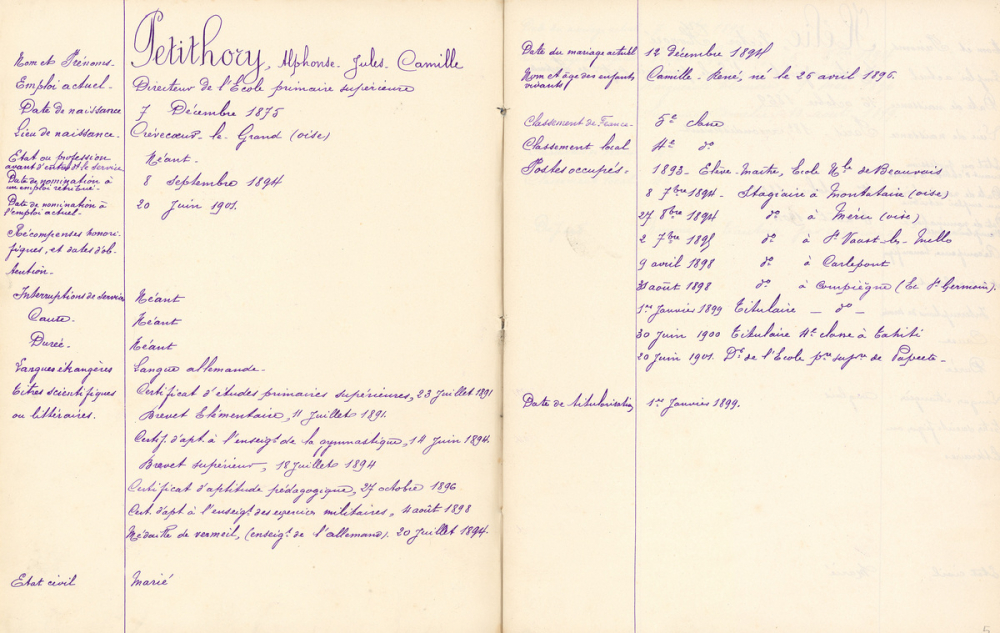 Nom et Prénoms. Petithory, Alphonse. Jules. Camille
Emploi actuel. Directeur de l'École primaire supérieure
Date de naissance 7 Décembre 1875
Lieu de naissance. Crèvecœur-le-Grand (oise)
Etat ou profession
avant d'entrer dt le service Néant.
Date de nomination à
un emploi rétribué. 8 septembre 1894
Date de nomination à
l'emploi actuel. 20 Juin 1901.
Récompenses honori-
fiques, et dates d'ob-
tention.
Interruptions de service Néant
Cause. Néant
Durée. Néant
Langues étrangères Langue allemande.
Titres scientifiques Certificat d'études primaires supérieures, 23 Juillet 1891
ou littéraires. Brevet Elémentaire, 11 Juillet 1891.
Certif. d'apt. à l'enseigt de la gymnastique, 14 Juin 1894.
Brevet supérieur, 18 Juillet 1894
Certificat d'aptitude pédagogique, 27 octobre 1896
Cert. d'apt à l'enseigt. des exercices militaires, 4 août 1898
Médaille de vermeil, (enseigt. de l'allemand). 20 Juillet 1894.
Etat civil Marié
Date du mariage actuel 12 décembre 1894
Nom et âge des enfants
vivants Camille-René, né le 26 avril 1896.
Classement de France. 5e classe
Classement local 4e do
Postes occupés. 1893. Elève-Maître, Ecole Nle de Beauvais
8 7bre 1894. Stagiaire à Montataire (oise)
27 8bre 1894 do à Méru (oise)
2 7bre 1895 do à St Vaast-les-Mello
9 avril 1898 do à Carlepont
31 août 1898 do à Compiègne (Ec St Germain).
1er Janvier 1899 Titulaire — do —
30 Juin 1900 Titulaire 4e classe à Tahiti
20 Juin 1901. Dr de l'Ecole pre supre de Papeete.
Date de titularisation 1er Janvier 1899.
5